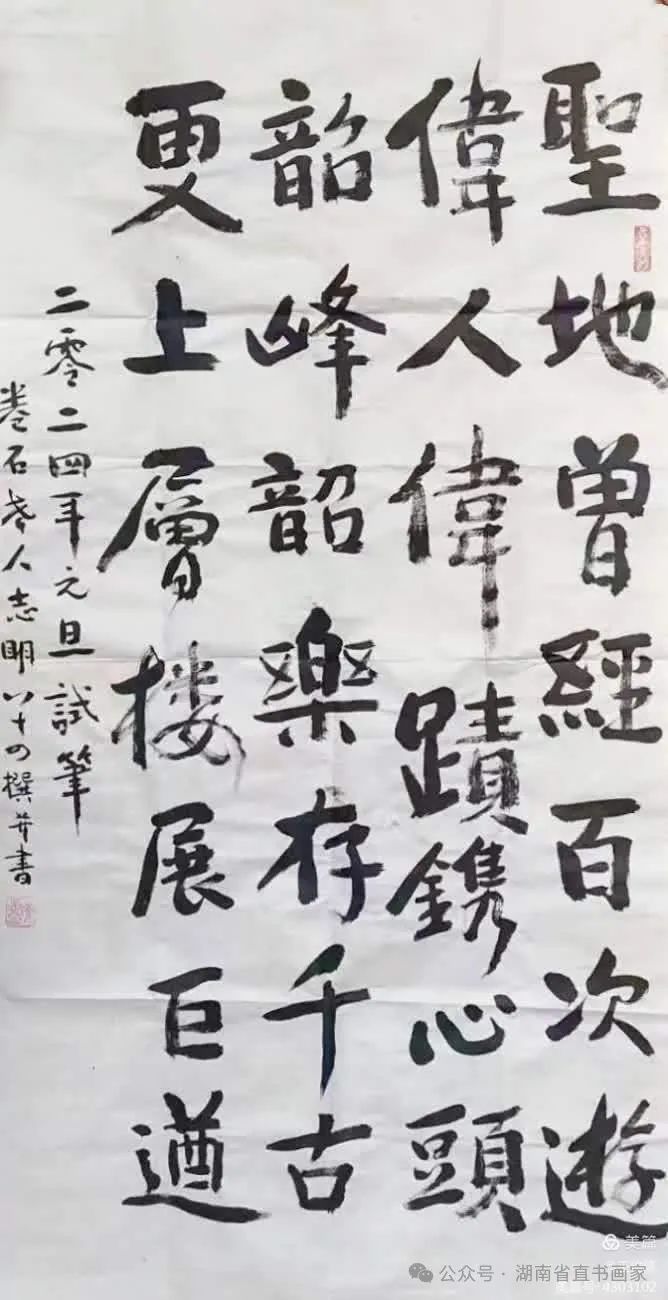 聖地曾經百次遊
偉人偉蹟鐫心頭
韶峰韶樂存千古
更上層楼展巨遒
二零二四年元旦試筆
卷石老人志明八十四撰并書
美篇
公众号·湖南省直书画家
4303102